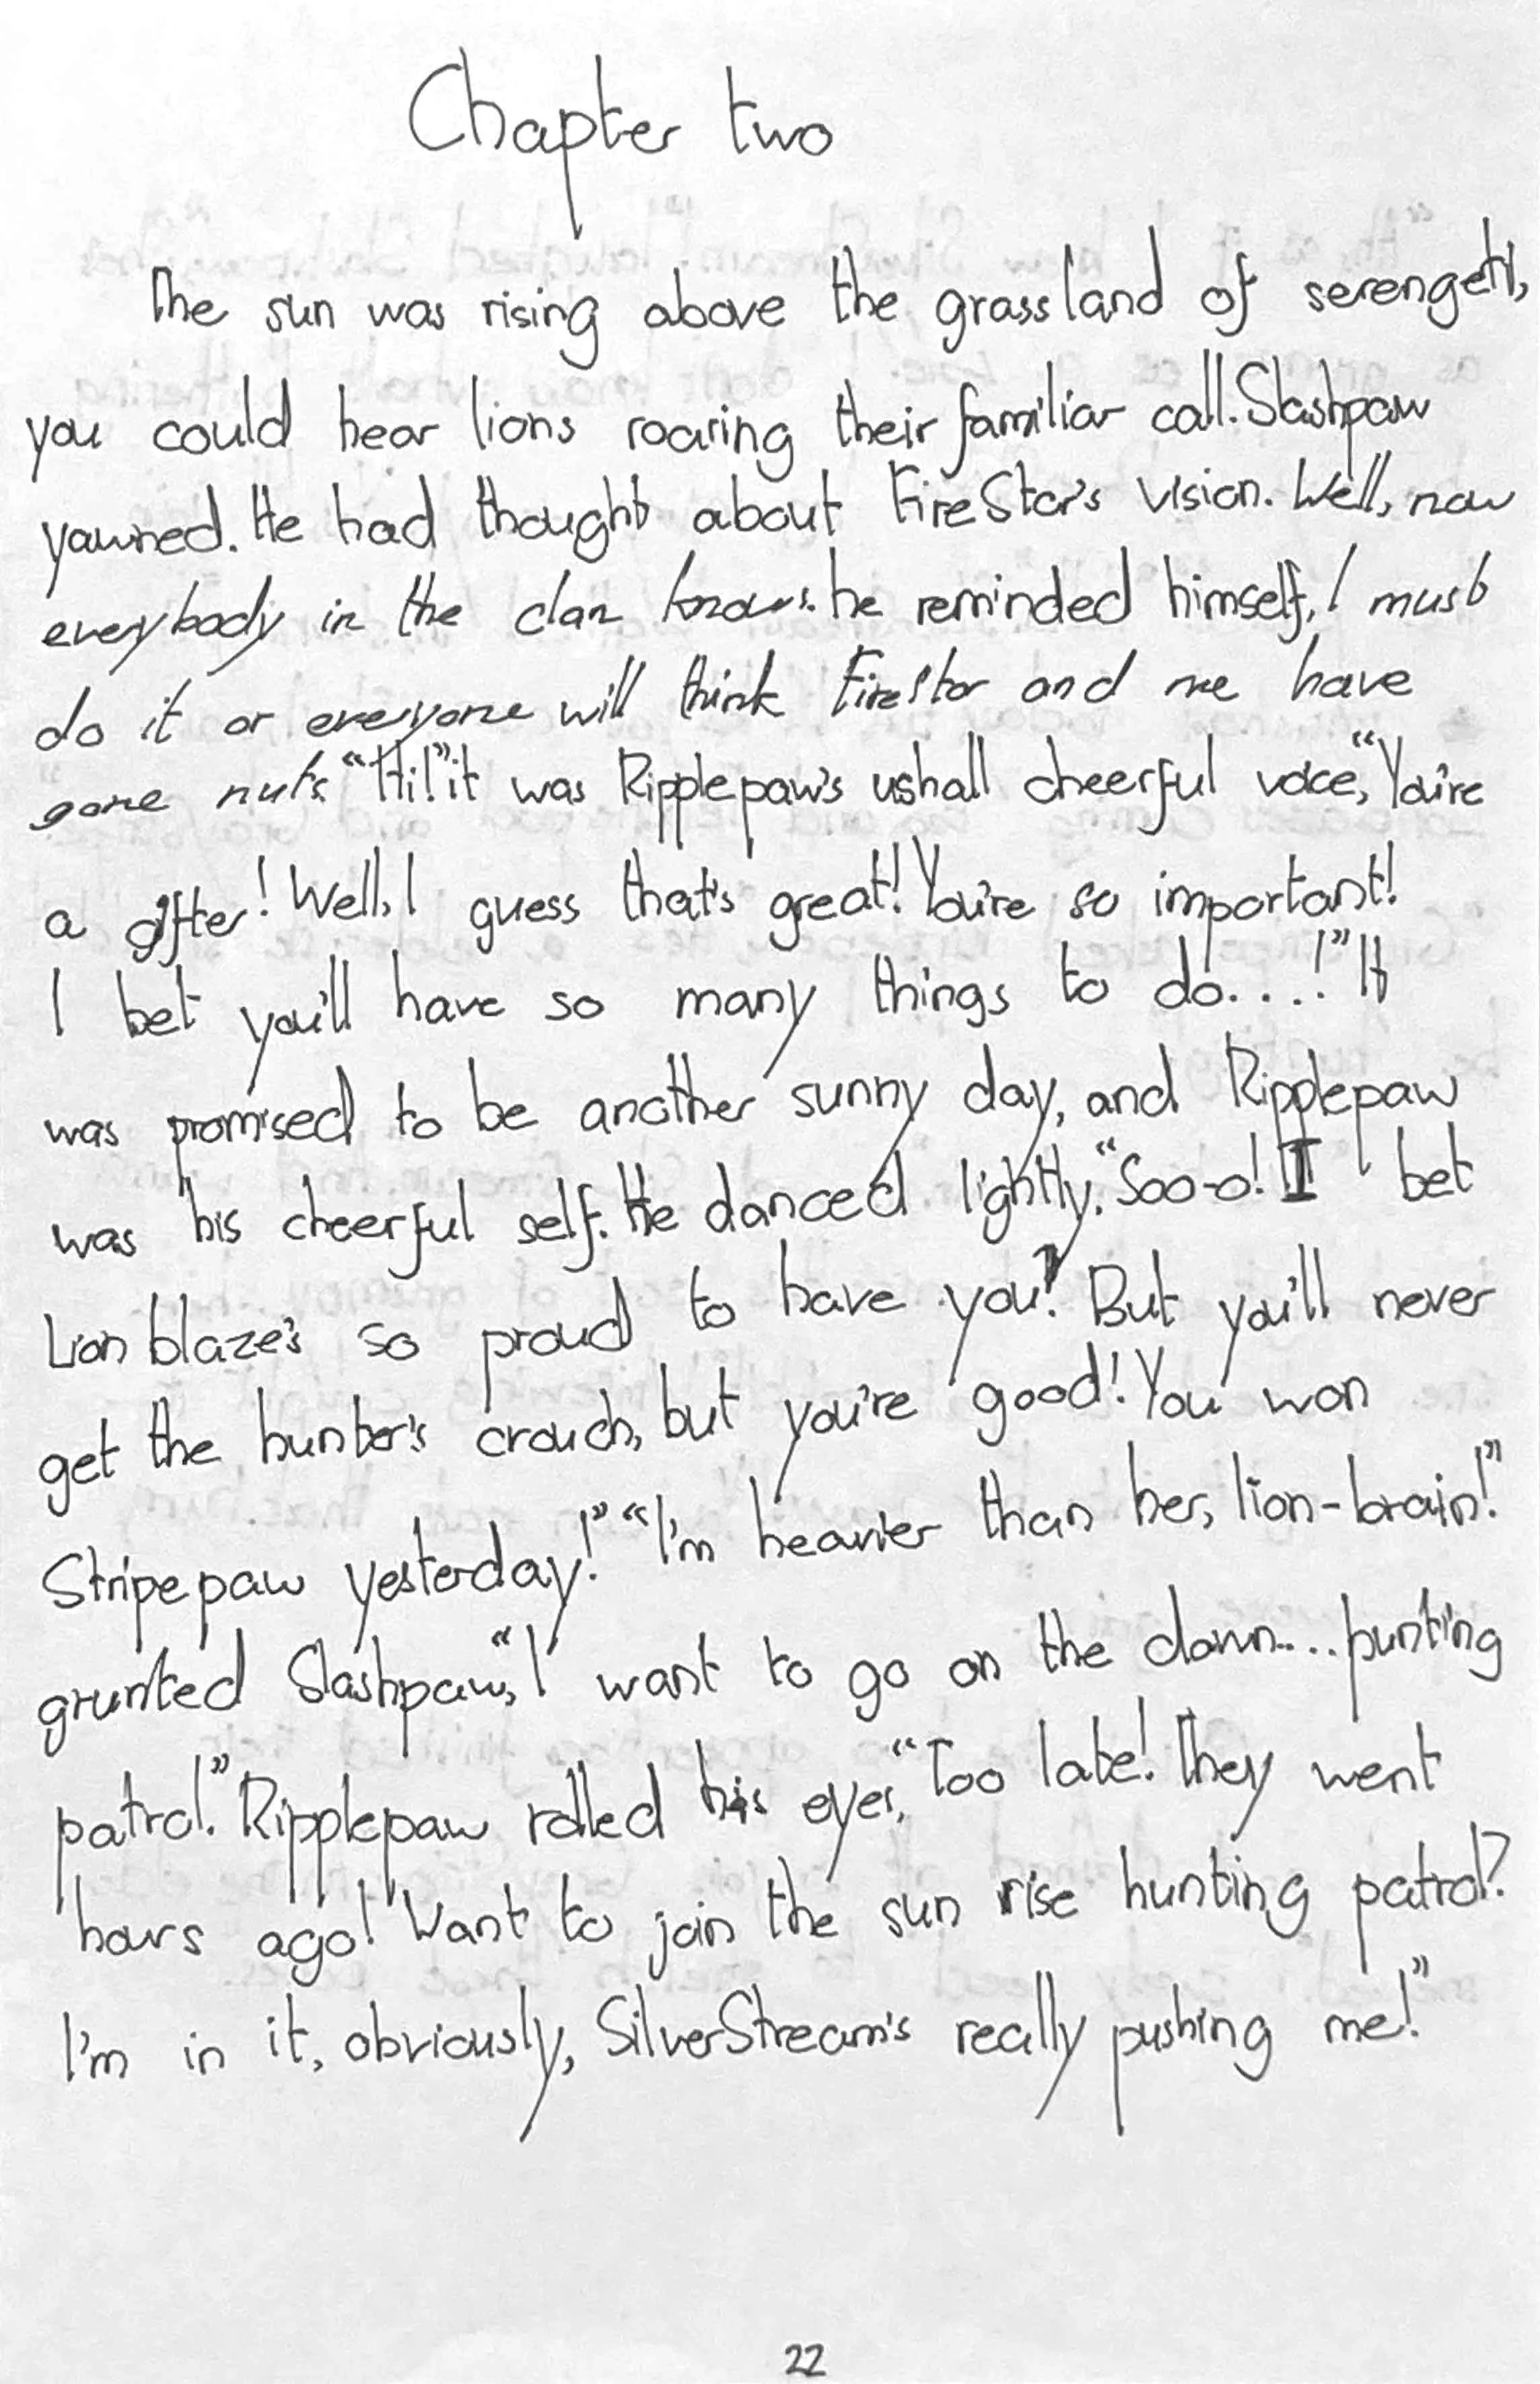 Chapter two
The sun was rising above the grassland of serengeti,
you could hear lions roaring their familiar call. Slashpaw
yawned. He had thought about FireStar's vision. Well, now
everybody in the clan knows. he reminded himself, I must
do it or everyone will think FireStar and me have
gone nuts. "Hi!" it was Ripplepaw's ushall cheerful voice, "You're
a gifter! Well, I guess that's great! You're so important!
I bet you'll have so many things to do....!" It
was promised to be another sunny day, and Ripplepaw
was his cheerful self. He danced lightly. "Soo-o! I bet
Lion blaze's so proud to have you! But you'll never
get the hunter's crouch, but you're good! You won
Stripepaw yesterday!" "I'm heavier than her, lion-brain!"
grunted Slashpaw, "I want to go on the dawn.... hunting
patrol." Ripplepaw rolled his eyes, "Too late! They went
hours ago! Want to join the sun rise hunting patrol?
I'm in it, obviously, SilverStream's really pushing me!"
22